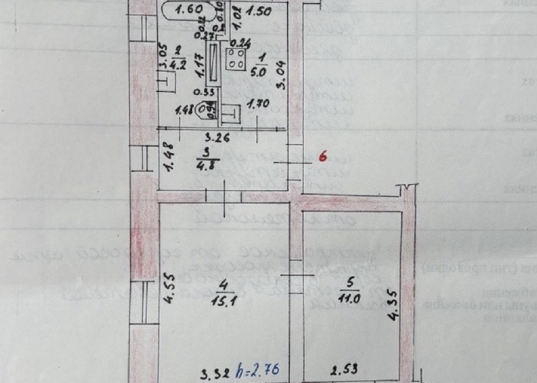 1.60
1.50
1.02
0.70
0.24
3.05
2
4.2
1.17
1
5.0
3.04
0.33
1.48
1.70
3.26
1.48
3
4.8
6
4.55
4
15.1
5
11.0
4.35
3.32 h=2.76
2.53